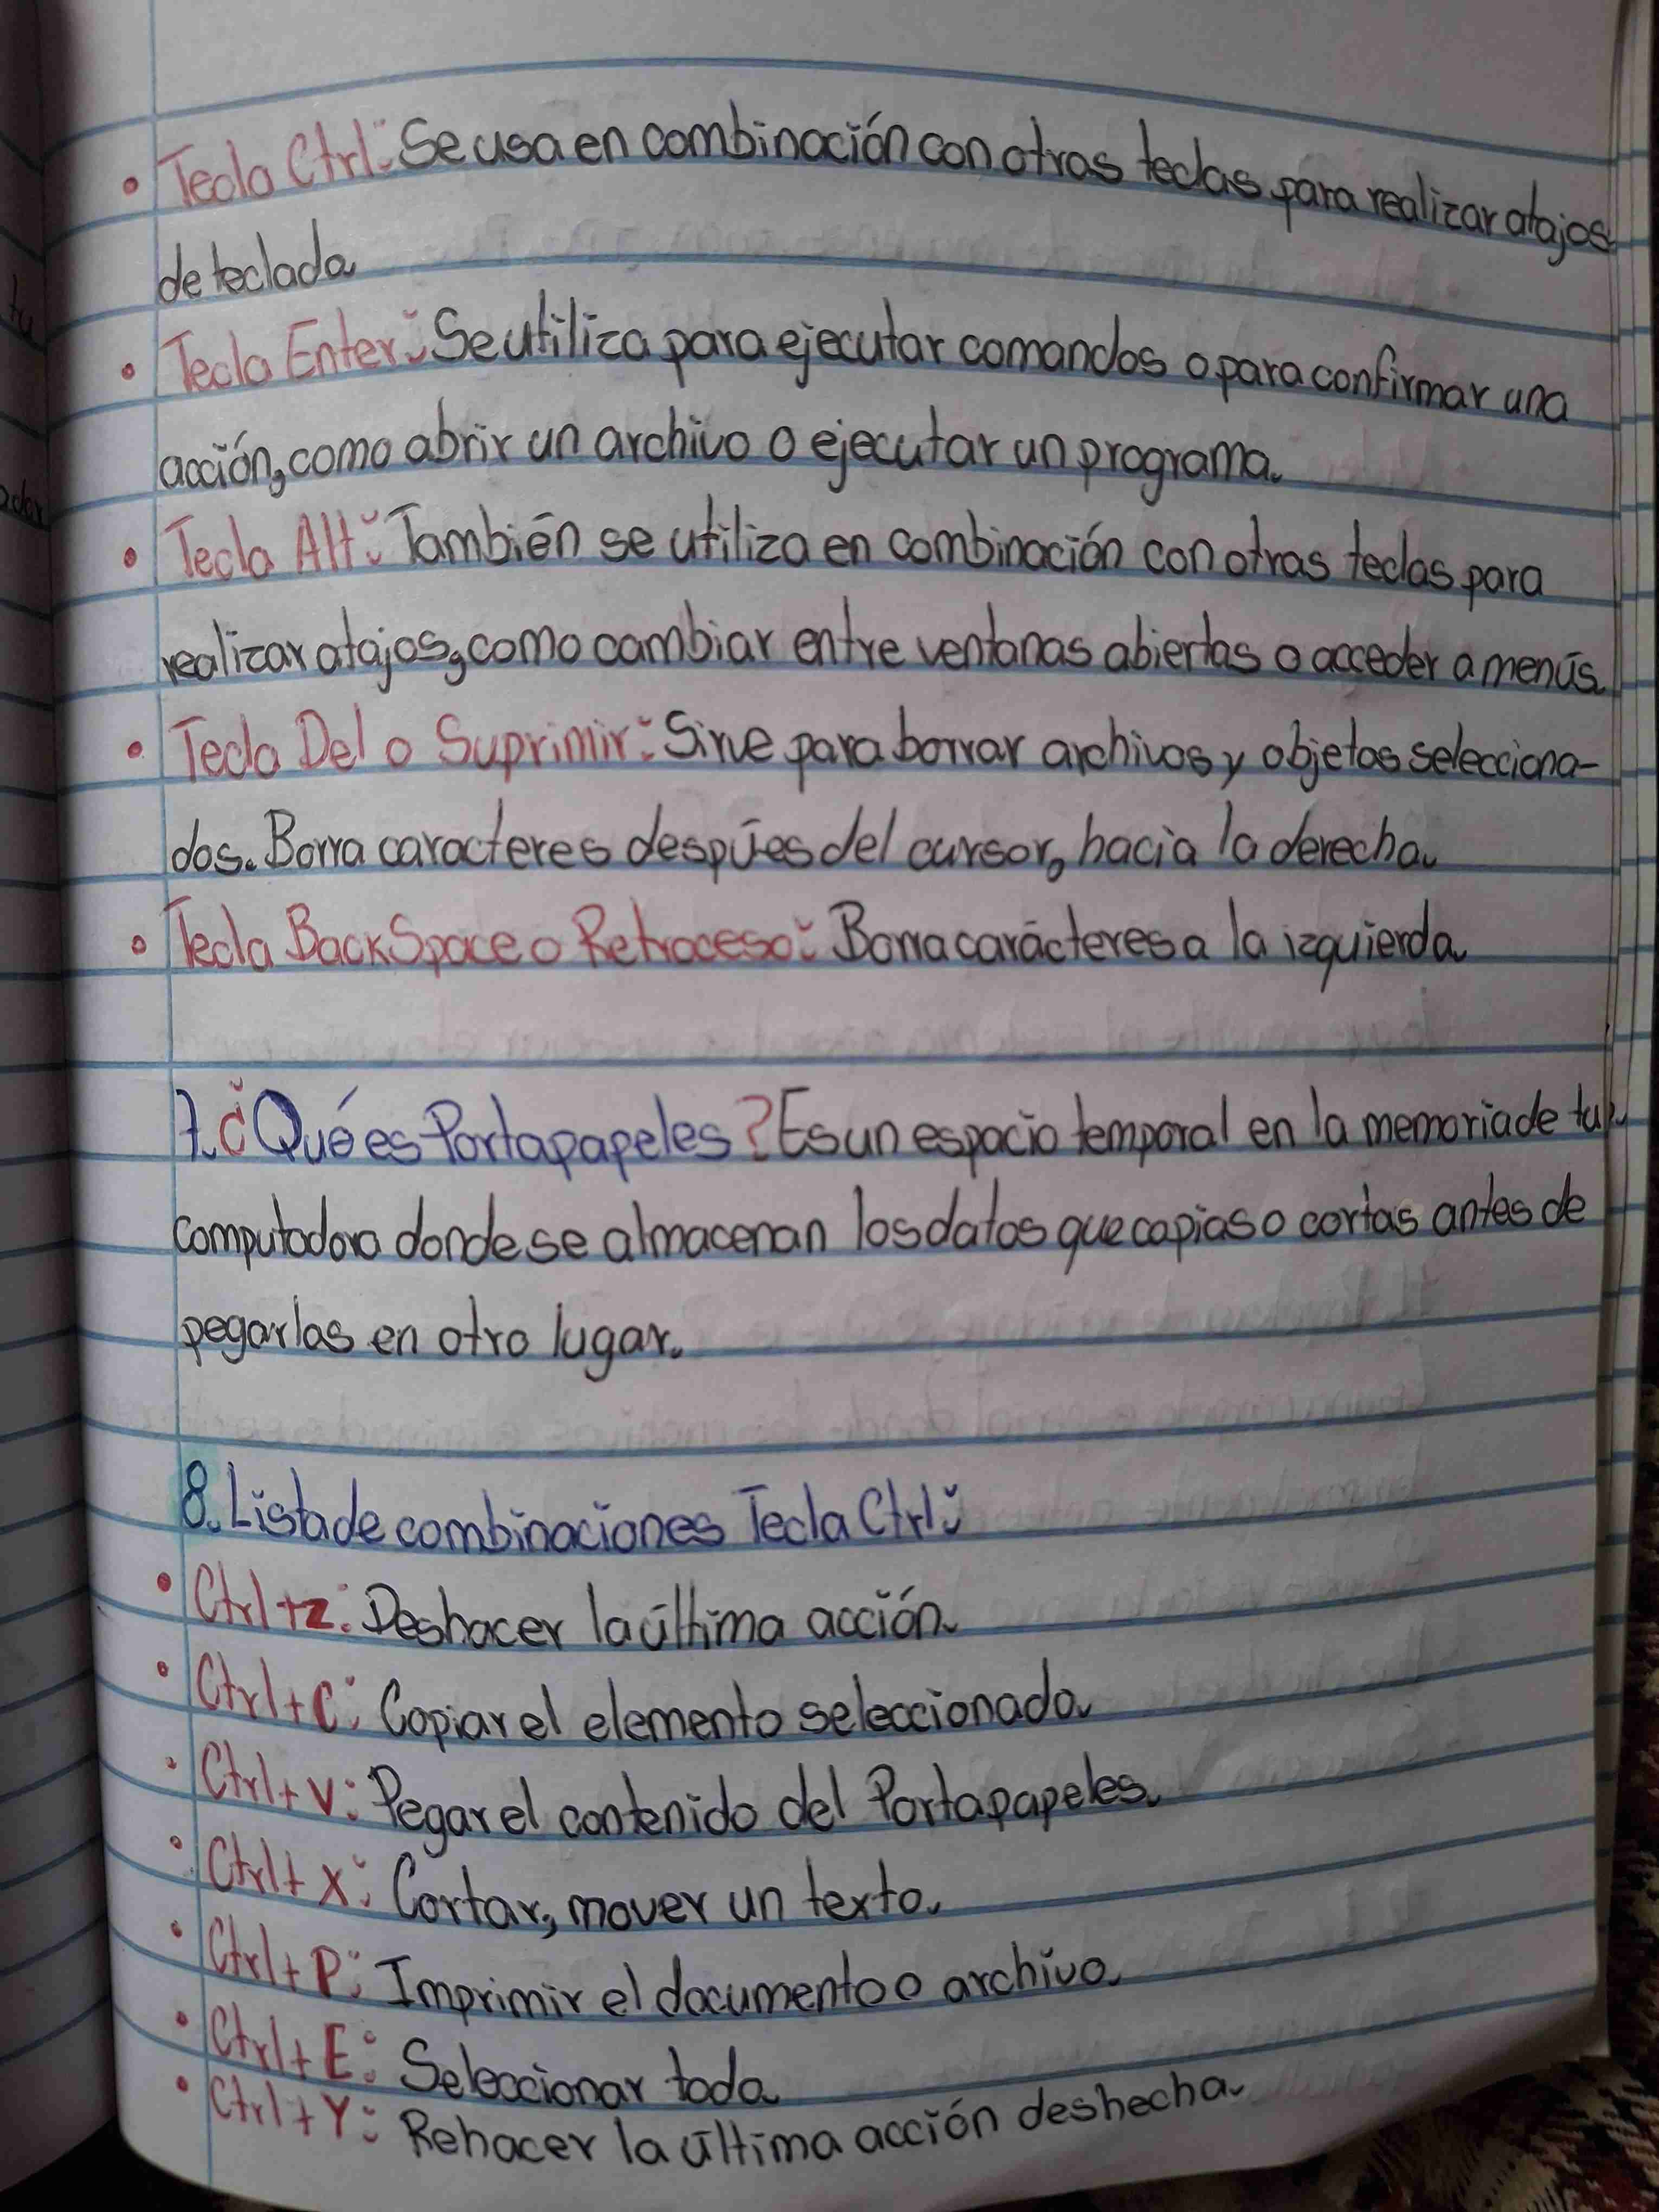 • Tecla Ctrl: Se usa en combinación con otras teclas para realizar atajos
de teclado.
• Tecla Enter: Se utiliza para ejecutar comandos o para confirmar una
acción, como abrir un archivo o ejecutar un programa.
• Tecla Alt: También se utiliza en combinación con otras teclas para
realizar atajos, como cambiar entre ventanas abiertas o acceder a menús.
• Tecla Del o Suprimir: Sirve para borrar archivos y objetos selecciona-
dos. Borra caracteres despúes del cursor, hacia la derecha.
• Tecla BackSpace o Retroceso: Borra carácteres a la izquierda.
7. ¿Qué es Portapapeles? Es un espacio temporal en la memoria de tu
computadora donde se almacenan los datos que copias o cortas antes de
pegarlos en otro lugar.
8. Lista de combinaciones Tecla Ctrl:
• Ctrl+z: Deshacer la última acción.
• Ctrl+C: Copiar el elemento seleccionado.
• Ctrl+V: Pegar el contenido del Portapapeles.
• Ctrl+X: Cortar, mover un texto.
• Ctrl+P: Imprimir el documento o archivo.
• Ctrl+E: Seleccionar todo.
• Ctrl+Y: Rehacer la última acción deshecha.